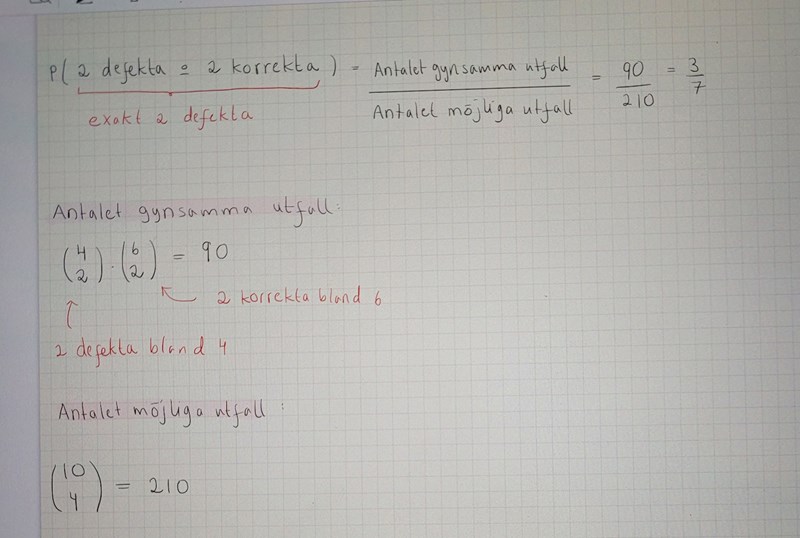 P( 2 defekta o 2 korrekta ) = Antalet gynsamma utfall / Antalet möjliga utfall = 90 / 210 = 3 / 7
exakt 2 defekta
Antalet gynsamma utfall:
(4 2) · (6 2) = 90
2 korrekta bland 6
2 defekta bland 4
Antalet möjliga utfall :
(10 4) = 210